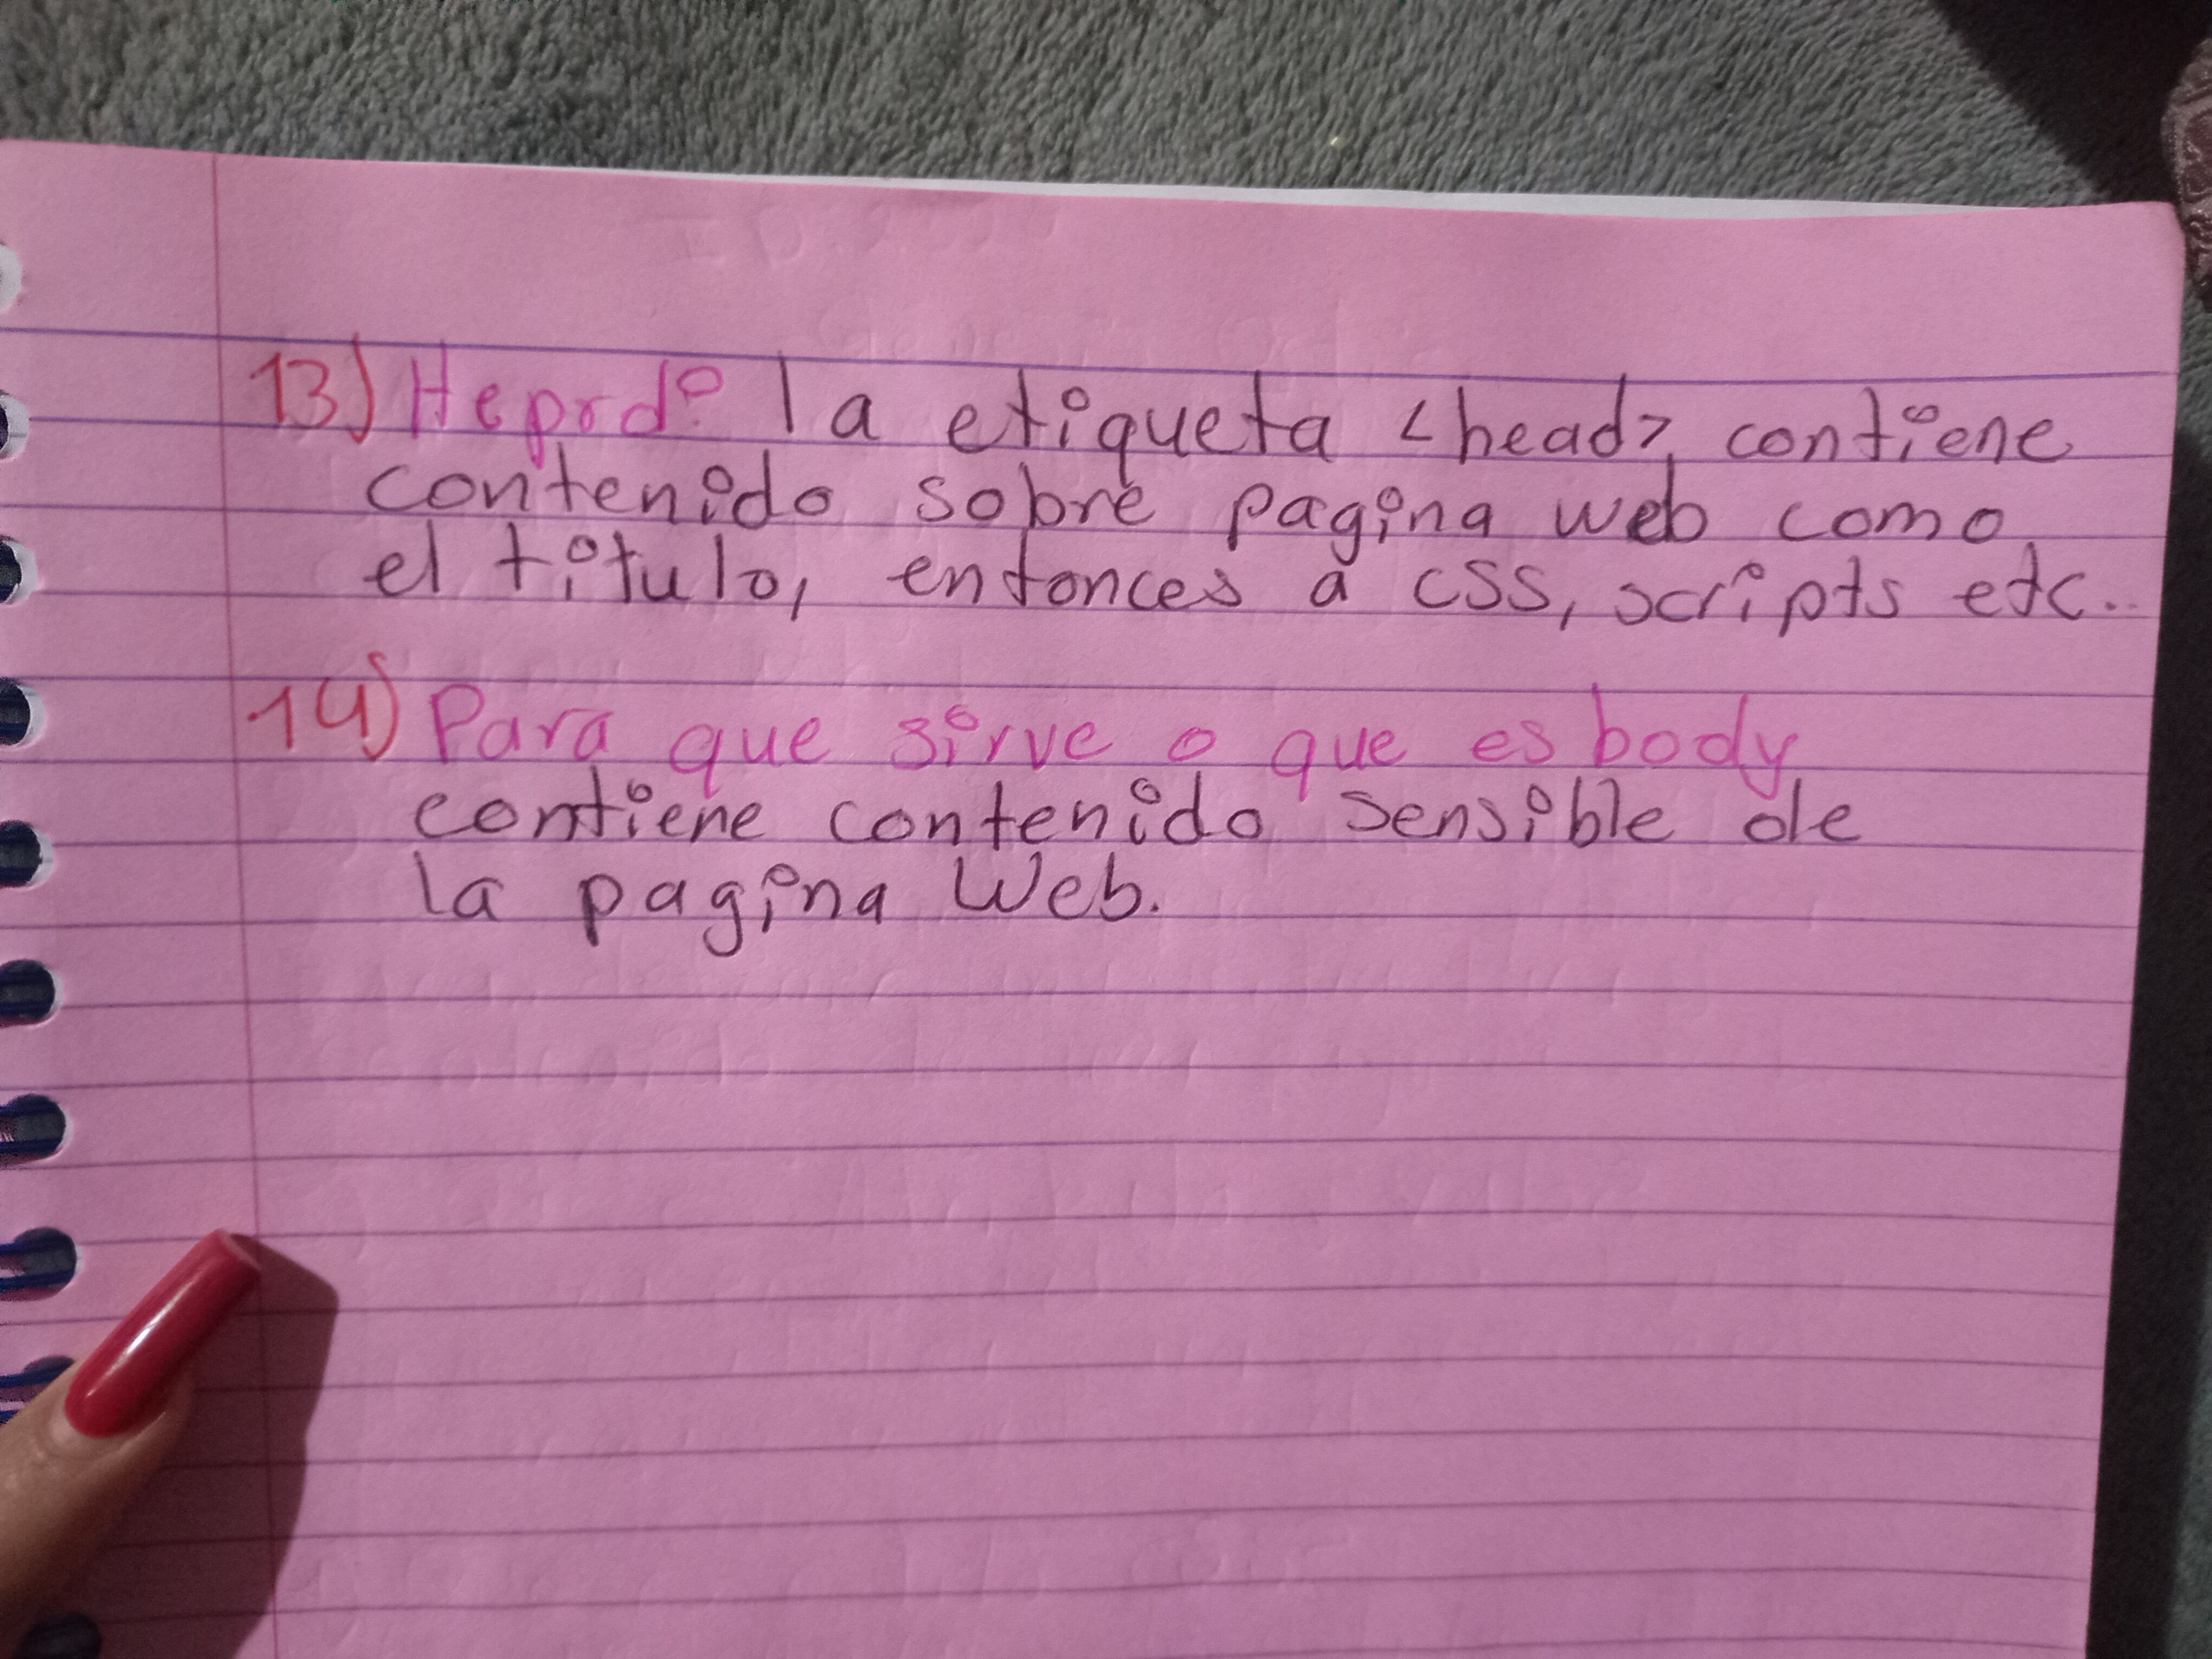 13) Heprd: la etiqueta <head> contiene
contenido sobre pagina web como
el titulo, entonces a css, scripts etc..
14) Para que sirve o que es body
contiene contenido sensible de
la pagina Web.